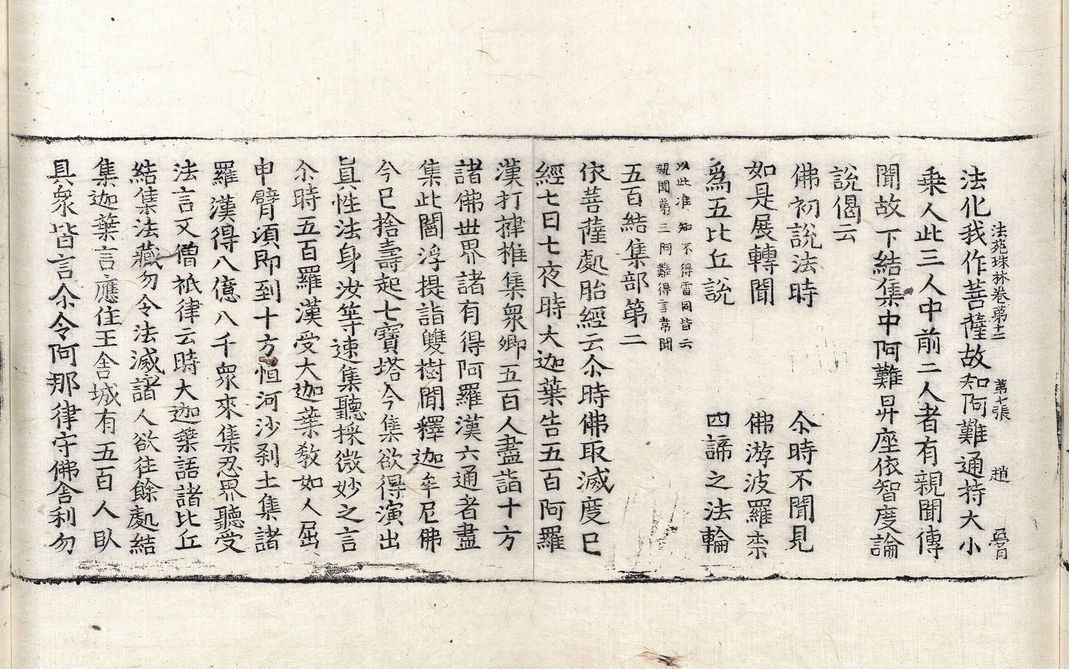 法苑珠林卷第十二 第七張 趙
法化我作菩薩故知阿難通持大小
乘人此三人中前二人者有親聞傳
聞故下結集中阿難昇座依智度論
說偈云
佛初說法時 尒時不聞見
如是展轉聞 佛游波羅柰
爲五比丘說 四諦之法輪
以此准知不得雷同皆云
親聞第三阿難得言常聞
五百結集部第二
依菩薩處胎經云尒時佛取滅度已
經七日七夜時大迦葉告五百阿羅
漢打揵椎集衆卿五百人盡詣十方
諸佛世界諸有得阿羅漢六通者盡
集此閻浮提詣雙樹閒釋迦牟尼佛
今已捨壽起七寶塔今集欲得演出
眞性法身汝等速集聽採微妙之言
尒時五百羅漢受大迦葉教如人屈
申臂頃即到十方恒河沙刹土集諸
羅漢得八億八千衆來集忍界聽受
法言又僧祇律云時大迦葉語諸比丘
結集法藏勿令法滅諸人欲往餘處結
集迦葉言應住王舍城有五百人臥
具衆皆言尒令阿那律守佛舍利勿